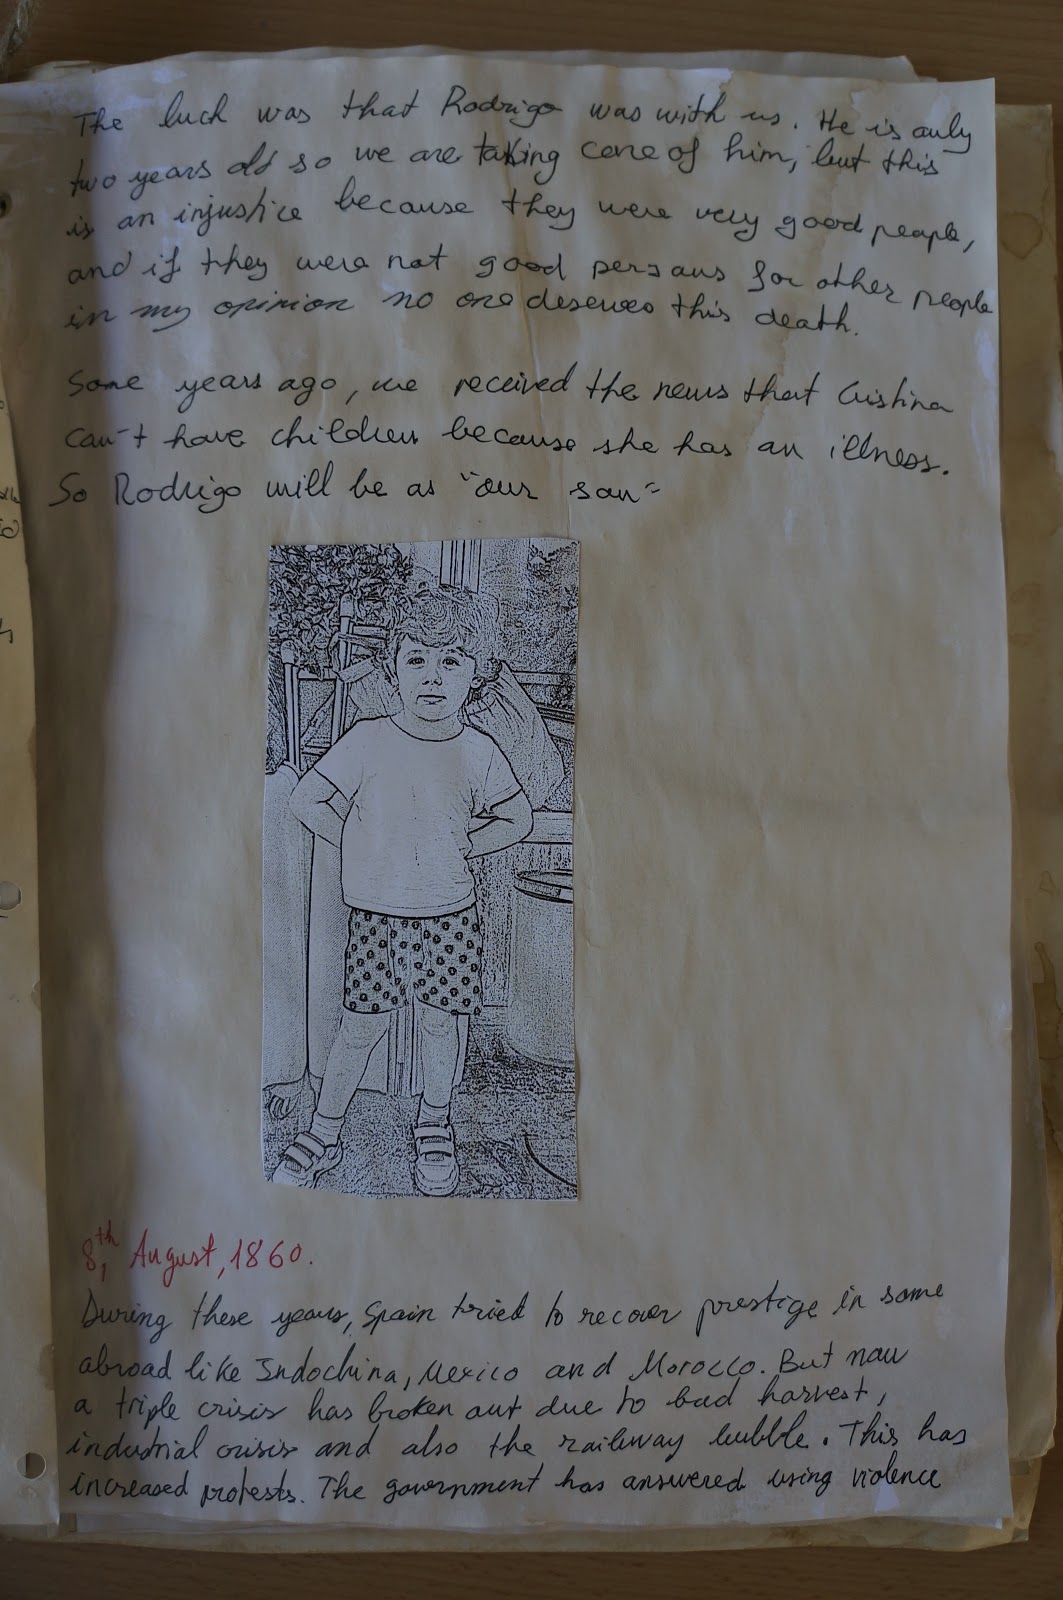 The luck was that Rodrigo was with us. He is only
two years old so we are taking care of him, but this
is an injustice because they were very good people,
and if they were not good persons for other people
in my opinion no one deserves this death.
Some years ago, we received the news that Cristina
can't have children because she has an illness.
So Rodrigo will be as "our son"
8th, August, 1860.
During these years, Spain tried to recover prestige in some
abroad like Indochina, Mexico and Morocco. But now
a triple crisis has broken out due to bad harvest,
industrial crisis and also the railway bubble. This has
increased protests. The government has answered using violence